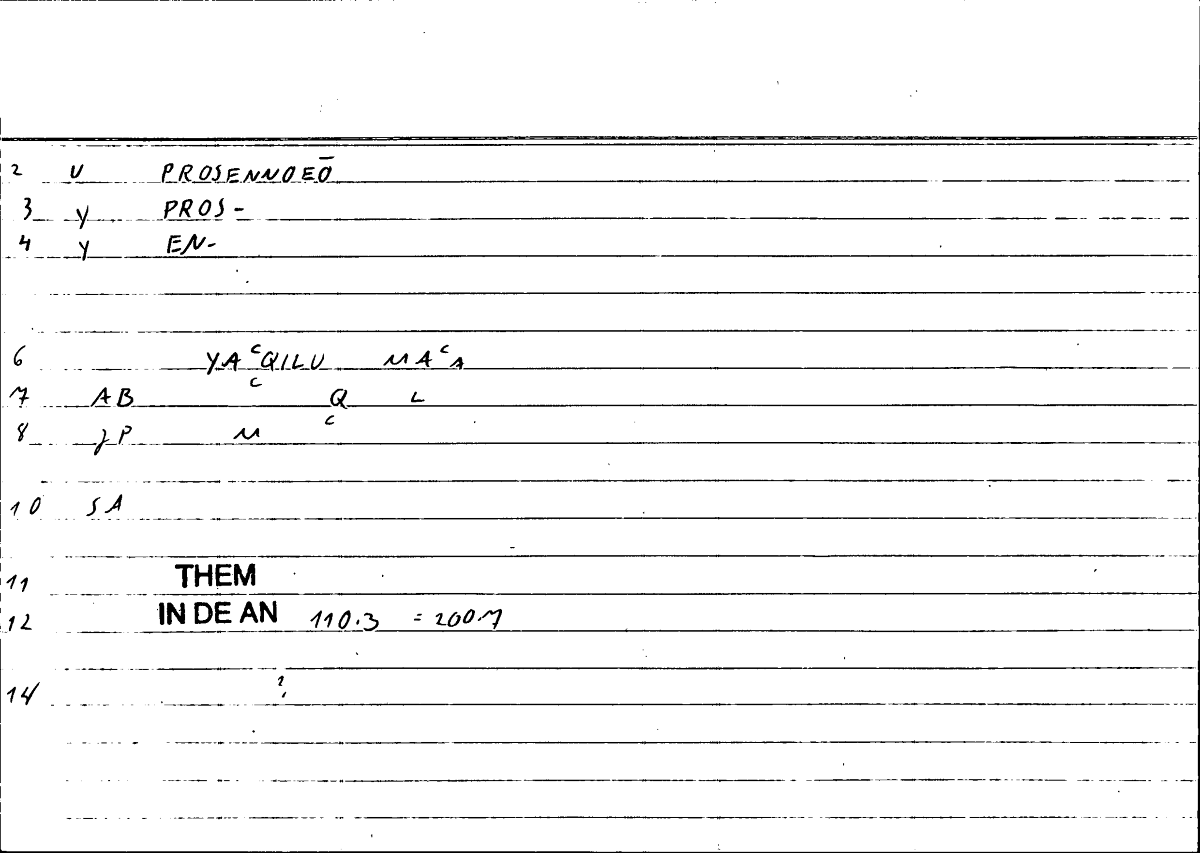 2 U PROSENNOEŌ
3 y PROS-
4 y EN-
6 YAᶜQILU MAᶜA
7 AB ᶜ Q L
8 JP M ᶜ
10 SA
11 THEM
12 IN DE AN 110.3 = 200.7
14 ?